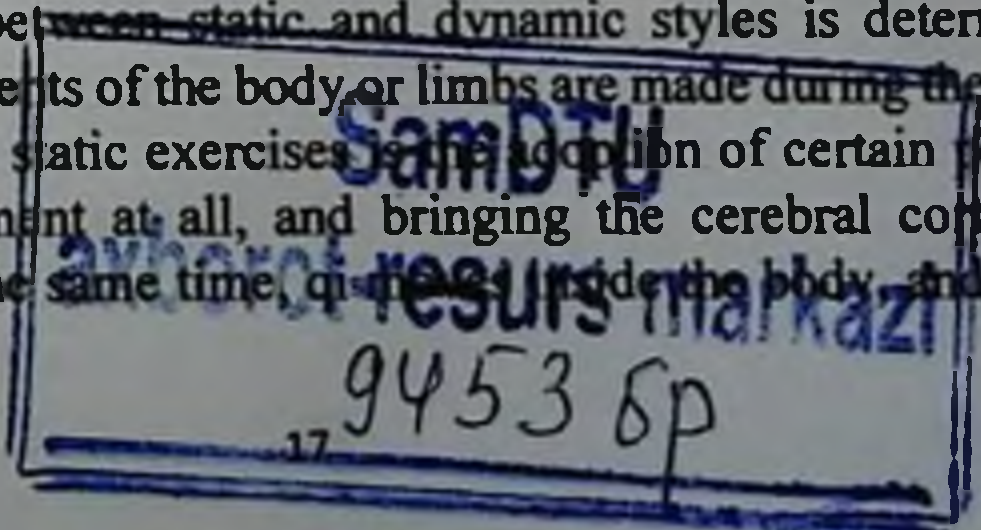 between static and dynamic styles is deter
ents of the body or limbs are made during the
static exercises is the adoption of certain
ment at all, and bringing the cerebral co
e same time, qi moves inside the body, and
SamDTU
axborot-resurs markazi
9453 бр
17